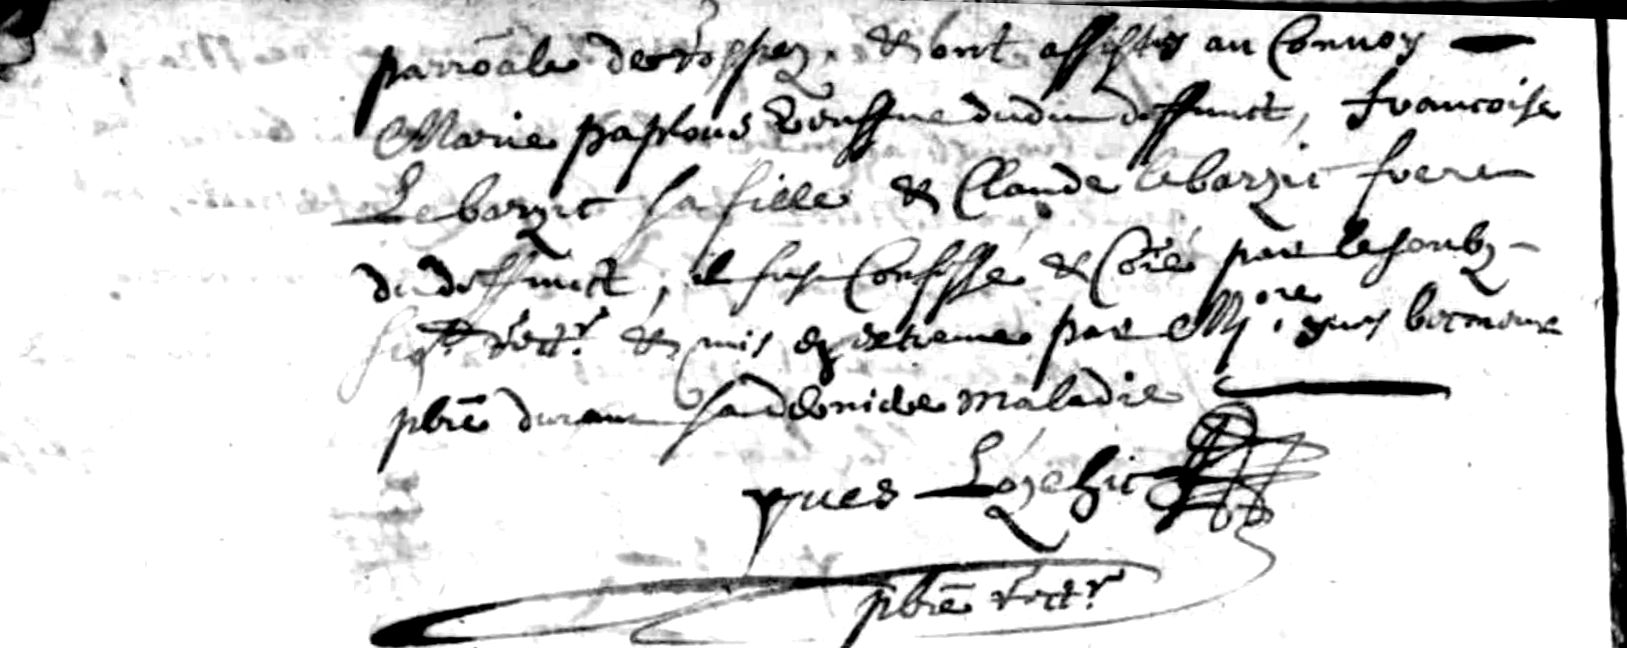 parroāle de & ont assistes au Convoy
Marie veuffue dudit deffunct, francoise
Lebarzic sa fille & Claude lebarzic frere
du deffunct, il fust Confessé & Coīé par lesoubz-
sigt rectr & mis en extreme par Mre. yues
pbrē durant sa derniere maladie
yues Lozehic
pbrē rectr